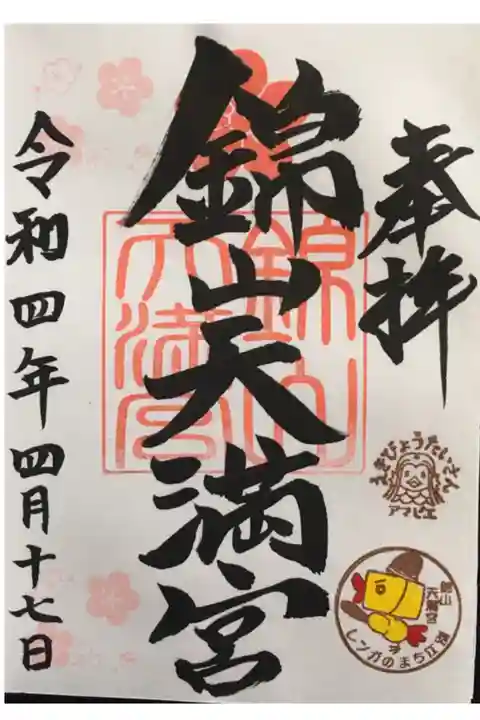 奉拝
錦山天満宮
錦山
天満宮
令和四年四月十七日
えきびょうたいさん
アマビエ
錦山
天満宮
レンガのまち江別